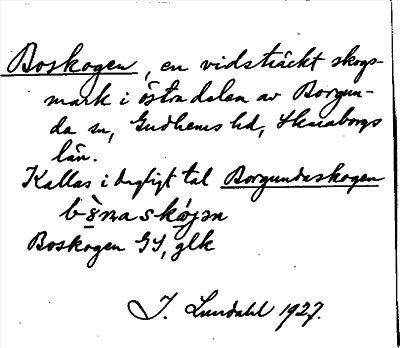 Boskogen, en vidsträckt skogs-
mark i östra delen av Borgun-
da sn, Gudhems hd, Skaraborgs
län.
Kallas i dagligt tal Borgundaskogen
Boskogen GS, glk
J. Lundahl 1927.